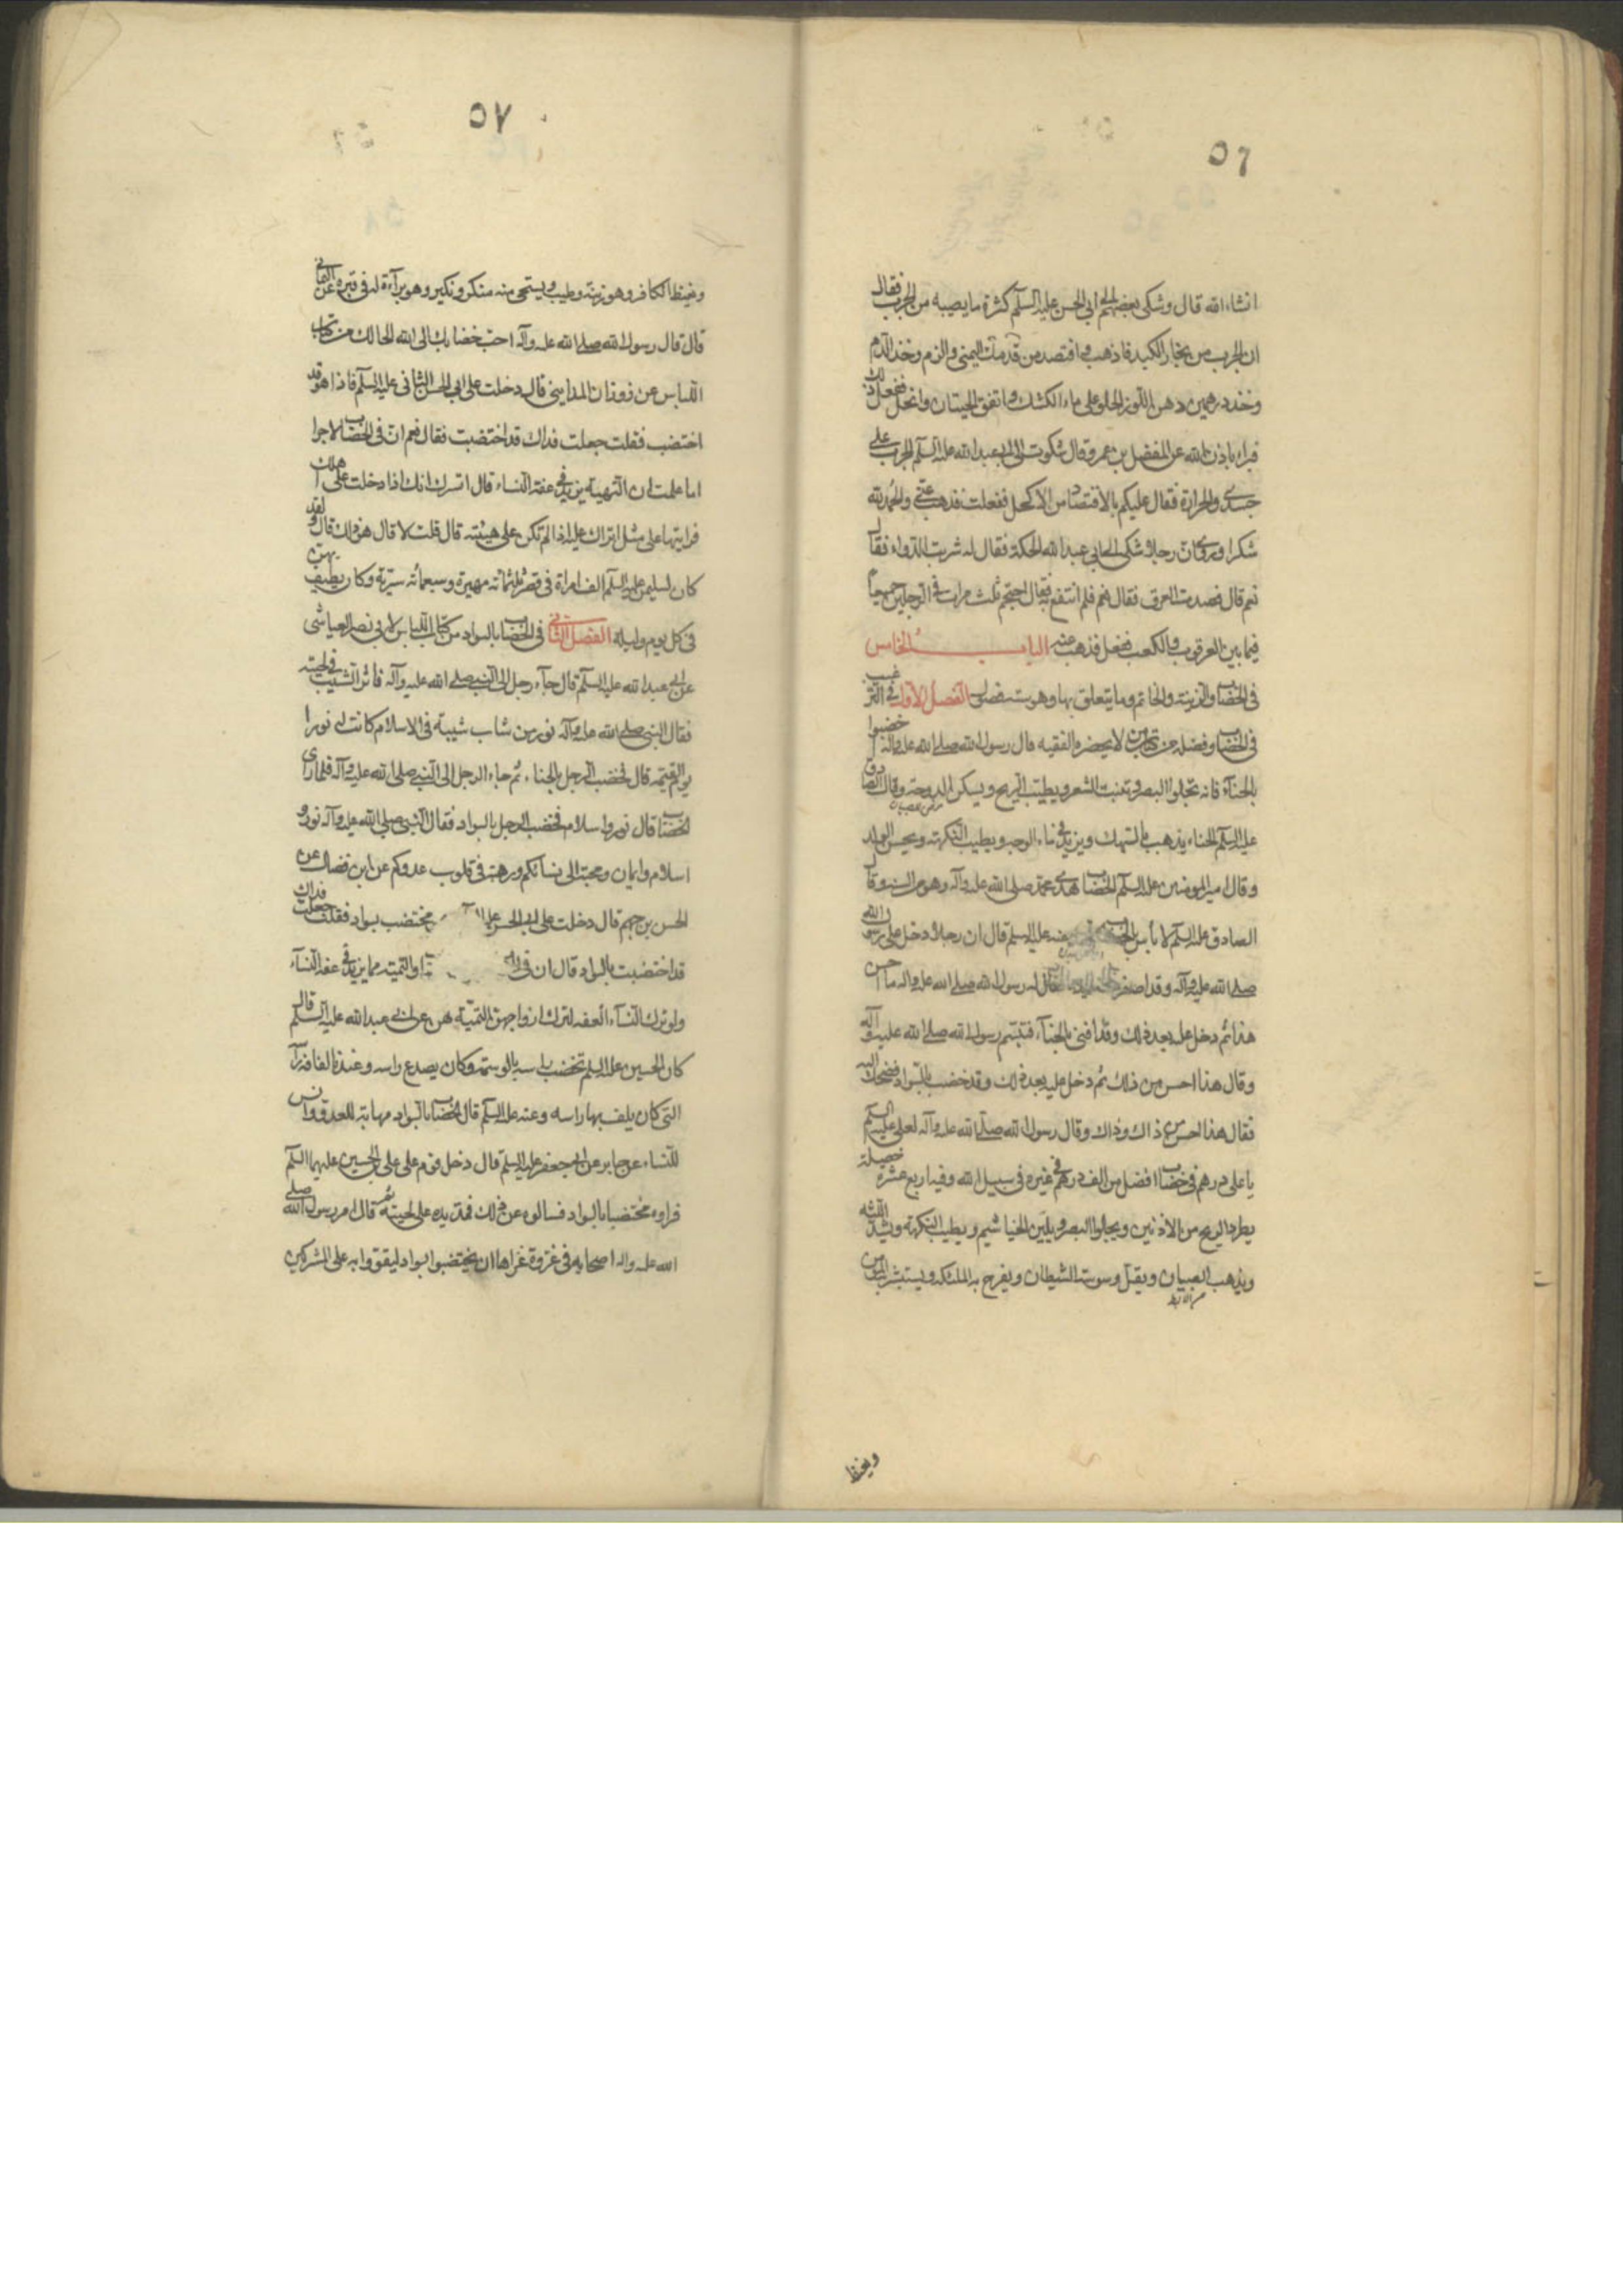 ٥٦
انشاءالله قال وشكى بعضهم الى ابي الحسن عليه السلم كثرة ما يصيبه من الجرب فقال
ان الجرب من بخار الكبد فاذهب وافتصد من قدمك اليمنى والزم وخذ الدم
وخذ درهمين دهن اللوز الحلو على ماء الكشك واتق الحيتان والخل ففعل ذلك
فبرء باذن الله عن المفضل بن عمر وقال شكوت الى ابي عبدالله عليه السلم الجرب على
جسدي والحرارة فقال عليكم بالافتصاد من الاكحل ففعلت فذهب عني والحمد لله
شكرا وروى ان رجلا شكى الى ابي عبدالله الحكة فقال له شربت الدواء فقال
نعم قال فصدت العرق فقال نعم فلم انتفع به فقال احتجم ثلث مرات في الرجلين جميعا
فيما بين العرقوب والكعب ففعل فذهب عنه الباب الخامس
في الخضاب والزينة والخاتم وما يتعلق بها وهو ستة فصول الفصل الاول في الترغيب
في الخضاب وفضله من كتاب من لا يحضره الفقيه قال رسول الله صلى الله عليه وآله اخضبوا
بالحناء فانه يجلوا البصر وينبت الشعر ويطيب الريح ويسكن الزوجة وقال الصادق
عليه السلم الحناء يذهب بالسهك ويزيد في ماء الوجه ويطيب النكهة ويحسن الولد
وقال امير المومنين عليه السلم الخضاب هدى محمد صلى الله عليه وآله وهو من السنة وقال
الصادق عليه السلم لا بأس بالخضاب عنه عليه السلم قال ان رجلا دخل على رسول الله
صلى الله عليه وآله وقد اصفر لحيته فقال له رسول الله صلى الله عليه واله ما احسن
هذا ثم دخل عليه بعد ذلك وقد اقنى بالحناء فتبسم رسول الله صلى الله عليه وآله
وقال هذا احسن من ذلك ثم دخل عليه بعد ذلك وقد خضب بالسواد فضحك اليه
فقال هذا احسن من ذاك وذاك وقال رسول الله صلى الله عليه وآله لعلي عليه السلم
يا علي درهم في خضاب افضل من الف درهم في غيره في سبيل الله وفيه اربع عشرة خصلة
يطرد الريح من الاذنين ويجلوا البصر ويلين الخياشيم ويطيب النكهة ويشد اللثة
ويذهب الصبيان ويقل وسوسة الشيطان ويفرح به الملئكة ويستبشر به المومن
ويغيظ
٥٧
ويغيظ الكافر وهو زينة وطيب ويستحي منه منكر ونكير وهو براءة له في قبره عن
قال قال رسول الله صلى الله عليه وآله احب خضابك الى الله الحالك من كتاب
اللباس عن ذوذان المدايني قال دخلت على ابي الحسن الثاني عليه السلم فاذا هو قد
اختضب فقلت جعلت فداك قد اختضبت فقال نعم ان في الخضاب لاجرا
اما علمت ان التهيئة يزيد في عفة النساء قال اتسرك انك اذا دخلت على اهلك
فرايتها على مثل ما تراك عليه اذا لم تكن على هيئته قال قلت لا قال هو ذاك قال ولقد
كان لسليمن عليه السلم الف امراة في قصر ثلثمائة مهيرة وسبعمائة سرية وكان يطيف بهن
في كل يوم وليلة الفصل الثاني في الخضاب بالسواد من كتاب اللباس لابي نصر العياشى
عن ابي عبد الله عليه السلم قال جآء رجل الى النبي صلى الله عليه وآله فاثر الشيب في لحيته
فقال النبي صلى الله عليه وآله نور من شاب شيبة في الاسلام كانت له نورا
يوم القيمة قال فخضب الرجل بالحناء ثم جاء الرجل الى النبي صلى الله عليه وآله فلما راى
الخضاب قال نور واسلام فخضب الرجل بالسواد فقال النبي صلى الله عليه وآله نور و
اسلام وايمان ومحبة الى نسائكم ورهبة في قلوب عدوكم عن ابن فضال عن
الحسن بن جهم قال دخلت على ابي الحسن عليه مختضب بسواد فقلت جعلت فداك
قد اختضبت بالسواد قال ان في والتهيئة مما يزيد في عفة النساء
ولو ترك النساء العفة لترك ازواجهن التهيئة لهن عن ابي عبد الله عليه السلم قال
كان الحسين عليه السلم تخضب راسه بالوسمة وكان يصدع راسه وعندنا لفافة راسه
التى كان يلف بها راسه وعنه عليه السلم قال الخضاب بالسواد مهابة للعدو وانس
للنساء عن جابر عن ابي جعفر عليه السلم قال دخل قوم على علي بن الحسين عليهما السلم
فراوه مختضبا بالسواد فسالوه عن ذلك فمد يده على لحيته ثم قال امر رسول الله صلى
الله عليه واله اصحابه في غزوة غزاها ان يختضبوا بسواد ليقووا به على المشركين